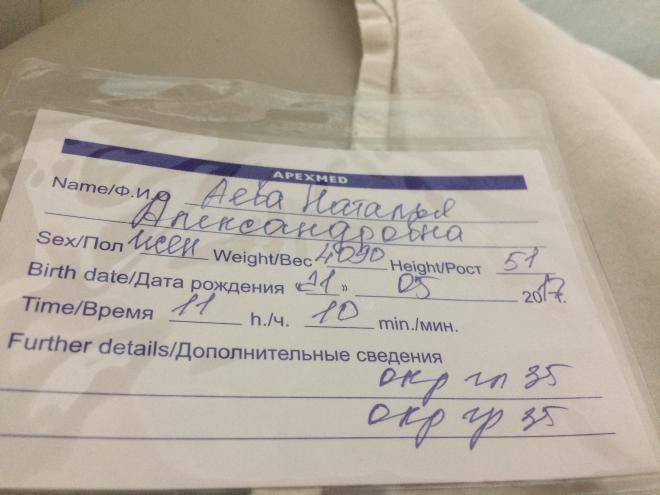 APEXMED
Name/Ф.И. Аева Наталья
Александровна
Sex/Пол жен Weight/Вес 4090 Height/Рост 51
Birth date/Дата рождения «11» 05 2017г.
Time/Время 11 h./ч. 10 min./мин.
Further details/Дополнительные сведения
окр гл 35
окр гр 35